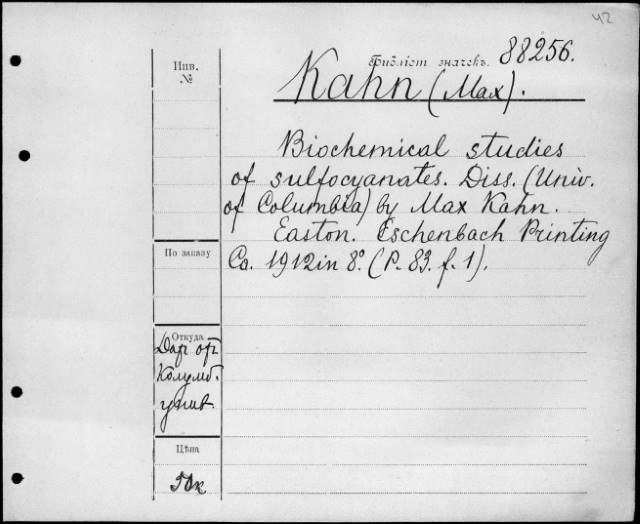 42
Библіот значекъ. 88256.
Инв.
№
Kahn (Max).
Biochemical studies
of sulfocyanates. Diss. (Univ.
of Columbia) by Max Kahn.
Easton. Eschenbach Printing
Co. 1912 in 8º. (P. 83. f. 1).
По заказу
Откуда
Дар от
Колумб.
унив.
Цѣна
50к